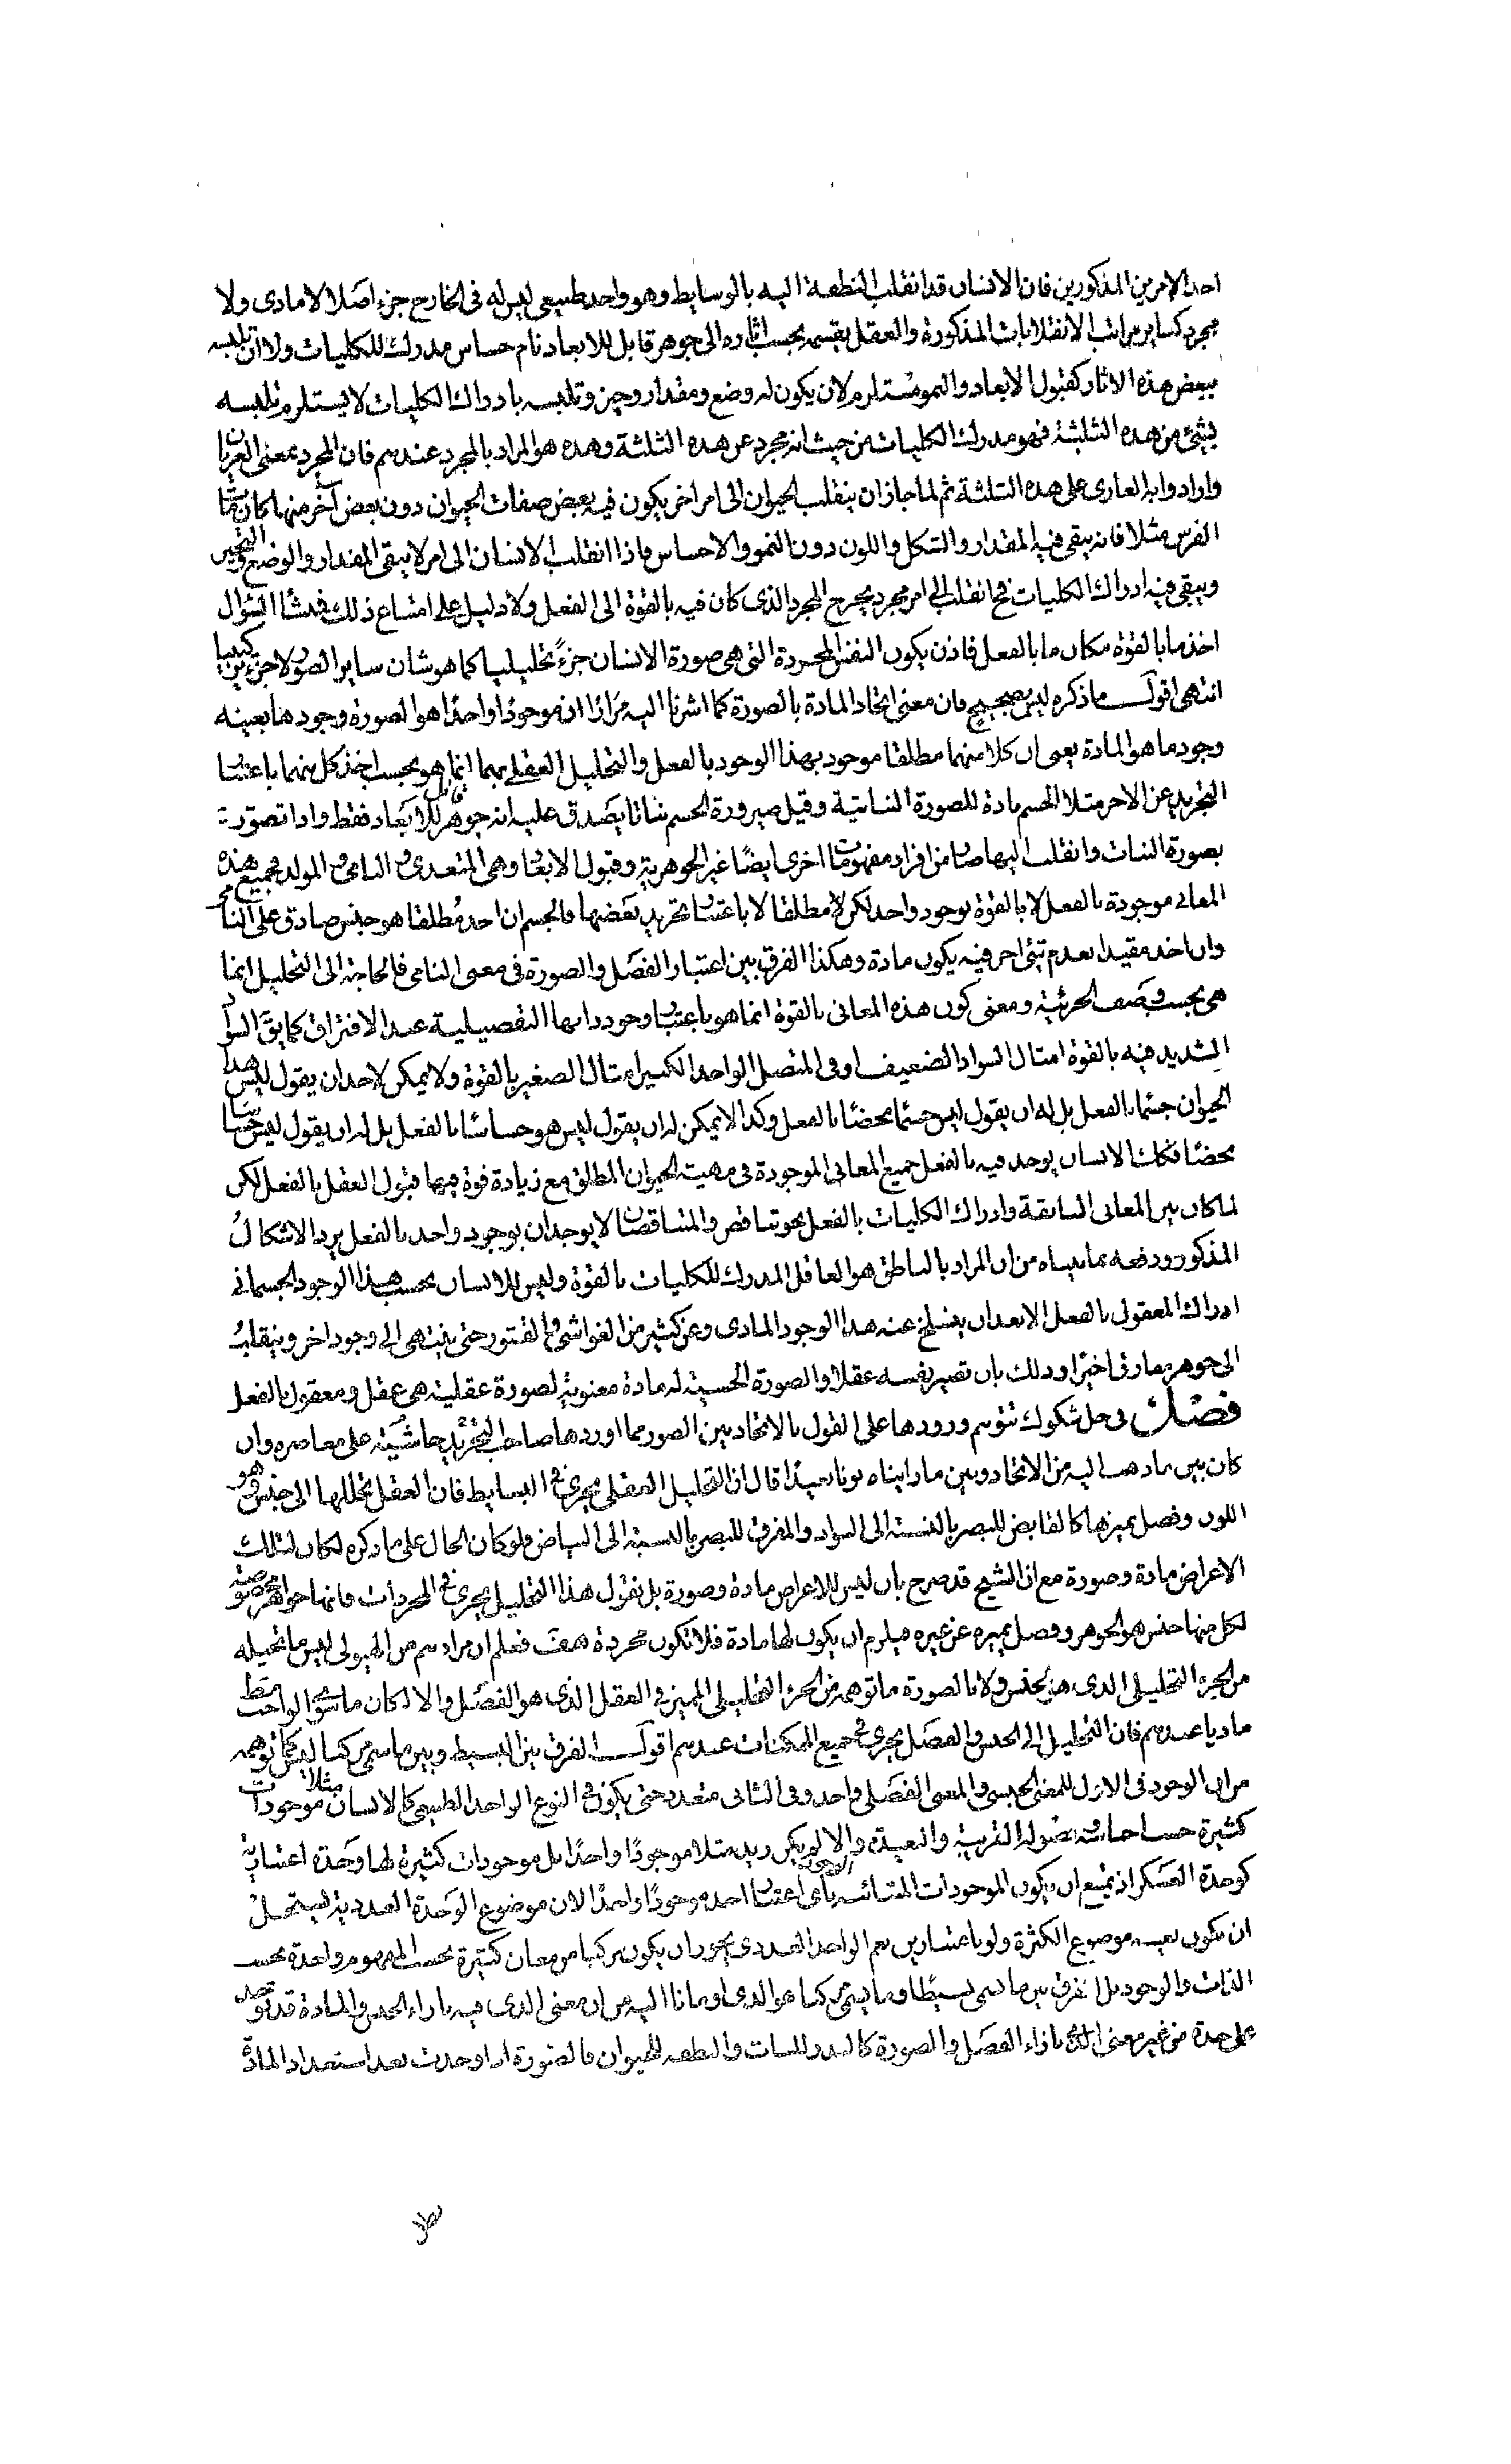 احد الامرين المذكورين فان الانسان قد انقلب النطفة اليه بالوسايط وهو واحد طبيعى ليس له فى الخارج جزء اصلا لا مادى ولا
مجرد كساير مراتب الانقلابات المذكورة والعقل يقسمه بحسب اثاره الى جوهر قابل للابعاد نام حساس مدرك للكليات ولا ان تلبسه
ببعض هذه الاثار كقبول الابعاد والنمو مستلزم لان يكون له وضع ومقدار وحيز وتلبسه بادراك الكليات لا يستلزم تلبسه
بشئ من هذه الثلثة فهو مدرك الكليات من حيث انه مجرد عن هذه الثلثة وهذه هو المراد بالمجرد عندهم فان المجرد بمعنى العريان
وارادوا به العارى على هذه الثلثة ثم لما جاز ان ينقلب الحيوان الى امر اخر يكون فيه بعض صفات الحيوان دون بعض آخر منها كان
الفرس مثلا فانه يبقى فيه المقدار والشكل واللون دون النمو والاحساس فاذا انقلب الانسان الى امر لا يبقى المقدار والوضع والتحيز
ويبقى فيه ادراك الكليات فح انقلب الى امر مجرد يخرج المجرد الذى كان فيه بالقوة الى الفعل ولا دليل على امتناع ذلك فمنشأ السؤال
اخذ ما بالقوة مكان ما بالفعل فاذن يكون النفس المجردة التى هى صورة الانسان جزءً تحليليا كما هو شان ساير الصور لا جزء تركيبيا
انتهى اقول ما ذكره ليس بصحيح فان معنى اتحاد المادة بالصورة كما اشرنا اليه مرارا ان موجودا واحدا هو الصورة وجودها بعينه
وجود ما هو المادة بمعنى ان كلا منهما مطلقا موجود بهذا الوجود بالفعل والتحليل العقلى بهما انما هو بحسب اخذ كل منهما باعتبار
التجريد عن الاخر مثلا الجسم مادة للصورة النباتية وقبل صيرورة الجسم نباتا يصدق عليه انه جوهر قابل للابعاد فقط واذا تصورت
بصورة النبات وانقلب اليها صار من افراد مفهومات اخرى ايضًا غير الجوهرية وقبول الابعاد وهى المتغذى والنامى والمولد فجميع هذه
المعانى موجودة بالفعل لا بالقوة بوجود واحد لكن لا مطلقا لا باعتبار تجريد بعضها فالجسم ان اخذ مطلقا هو جنس صادق على النامى
وان اخذ مقيدا بعدم شئ اخر فيه يكون مادة وهكذا الفرق بين اعتبار الفصل والصورة فى معنى النامى فالحاجة الى التحليل انما
هى بحسب وصف الجزئية ومعنى كون هذه المعانى بالقوة انما هو باعتبار وجوداتها التفصيلية عند الافتراق كما يق السواد
الشديد فيه بالقوة امثال السواد الضعيف او فى المتصل الواحد الكبير امثال الصغير بالقوة ولا يمكن لاحد ان يقول ليس هذا
الحيوان جسما بالفعل بل له ان يقول ليس جسمًا محضًا بالفعل وكذا لا يمكن له ان يقول ليس هو حساسًا بالفعل بل له ان يقول ليس حساسا
محضًا فكك الانسان يوجد فيه بالفعل جميع المعانى الموجودة فى مهية الحيوان المطلق مع زيادة قوة فيها قبول العقل بالفعل لكن
لما كان بين المعانى السابقة وادراك الكليات بالفعل نحو تناقض والمتناقضان لا يوجدان بوجود واحد بالفعل يرد الاشكال
المذكور ودفعه بما بيناه من ان المراد بالناطق هو العاقل المدرك للكليات بالقوة وليس للانسان بحسب هذا الوجود الجسمانى
ادراك المعقول بالفعل الا بعد ان ينسلخ عنه هذا الوجود المادى وعن كثير من الغواشى والقشور حتى ينتهى الى وجود اخر وينقلب
الى جوهر مفارق اخيرًا وذلك بان تصير نفسه عقلا والصورة الحسية له مادة معنوية لصورة عقلية هى عقل ومعقول بالفعل
فصل فى حل شكوك نتوهم ورودها على القول بالاتحاد بين الصور مما اوردها صاحب التجريد حاشية على معاصره وان
كان بين ما ذهب اليه من الاتحاد وبين ما رايناه بونا بعيدًا قال ان التحليل العقلى يجرى فى البسايط فان العقل يحللها الى جنس هو
اللون وفصل يميزها كالقابض للبصر بالنسبة الى السواد والمفرق للبصر بالنسبة الى البياض ولو كان الحال على ما ذكره لكان لتلك
الاعراض مادة وصورة مع ان الشيخ قد صرح بان ليس للاعراض مادة وصورة بل نقول هذا التحليل يجرى فى المجردات فانها جواهر
لكل منها جنس هو الجوهر وفصل يميزه عن غيره فيلزم ان يكون لها مادة فلا تكون مجردة هف فعلم ان مرادهم من الهيولى ليس ما تخيله
من الجزء التحليلى الذى هو الجنس ولا بالصورة ما توهمه من الجزء التحليلى المميز فى العقل الذى هو الفصل والا لكان ما سوى الواجب فقط
ماديا عندهم فان التحليل الى الجنس والفصل يجرى فى جميع الممكنات عندهم اقول الفرق بين البسيط وبين ما سمى مركبا ليس كما توهمه
من ان الوجود فى الاول للمعنى الجنسى والمعنى الفصلى واحد وفى الثانى متعدد حتى يكون فى النوع الواحد الطبيعى كالانسان مثلا موجودات
كثيرة حسب اجناسه وفصوله القريبة والبعيدة والا لم يكن زيد مثلا موجودًا واحدًا بل موجودات كثيرة لها وحدة اعتبارية
كوحدة العسكر اذ يمتنع ان يكون الموجودات المتباينة الوجود باى اعتبار اخذ موجودًا واحدًا لان موضوع الوحدة العددية يستحيل
ان يكون بعينه موضوع الكثرة ولو باعتبارين نعم الواحد العددى يجوز ان يكون مركبا من معان كثيرة بحسب المفهوم واحدة بحسب
الذات والوجود بل الفرق بين ما سمى بسيطا وما يسمى مركبا هو الذى اومانا اليه من ان معنى الذى فيه بازاء الجنس والمادة قد توجد
على حدة من غير معنى الذى بازاء الفصل والصورة كالبذر للنبات والنطفه للحيوان فالصورة اذا وحدث بعد استعداد المادة